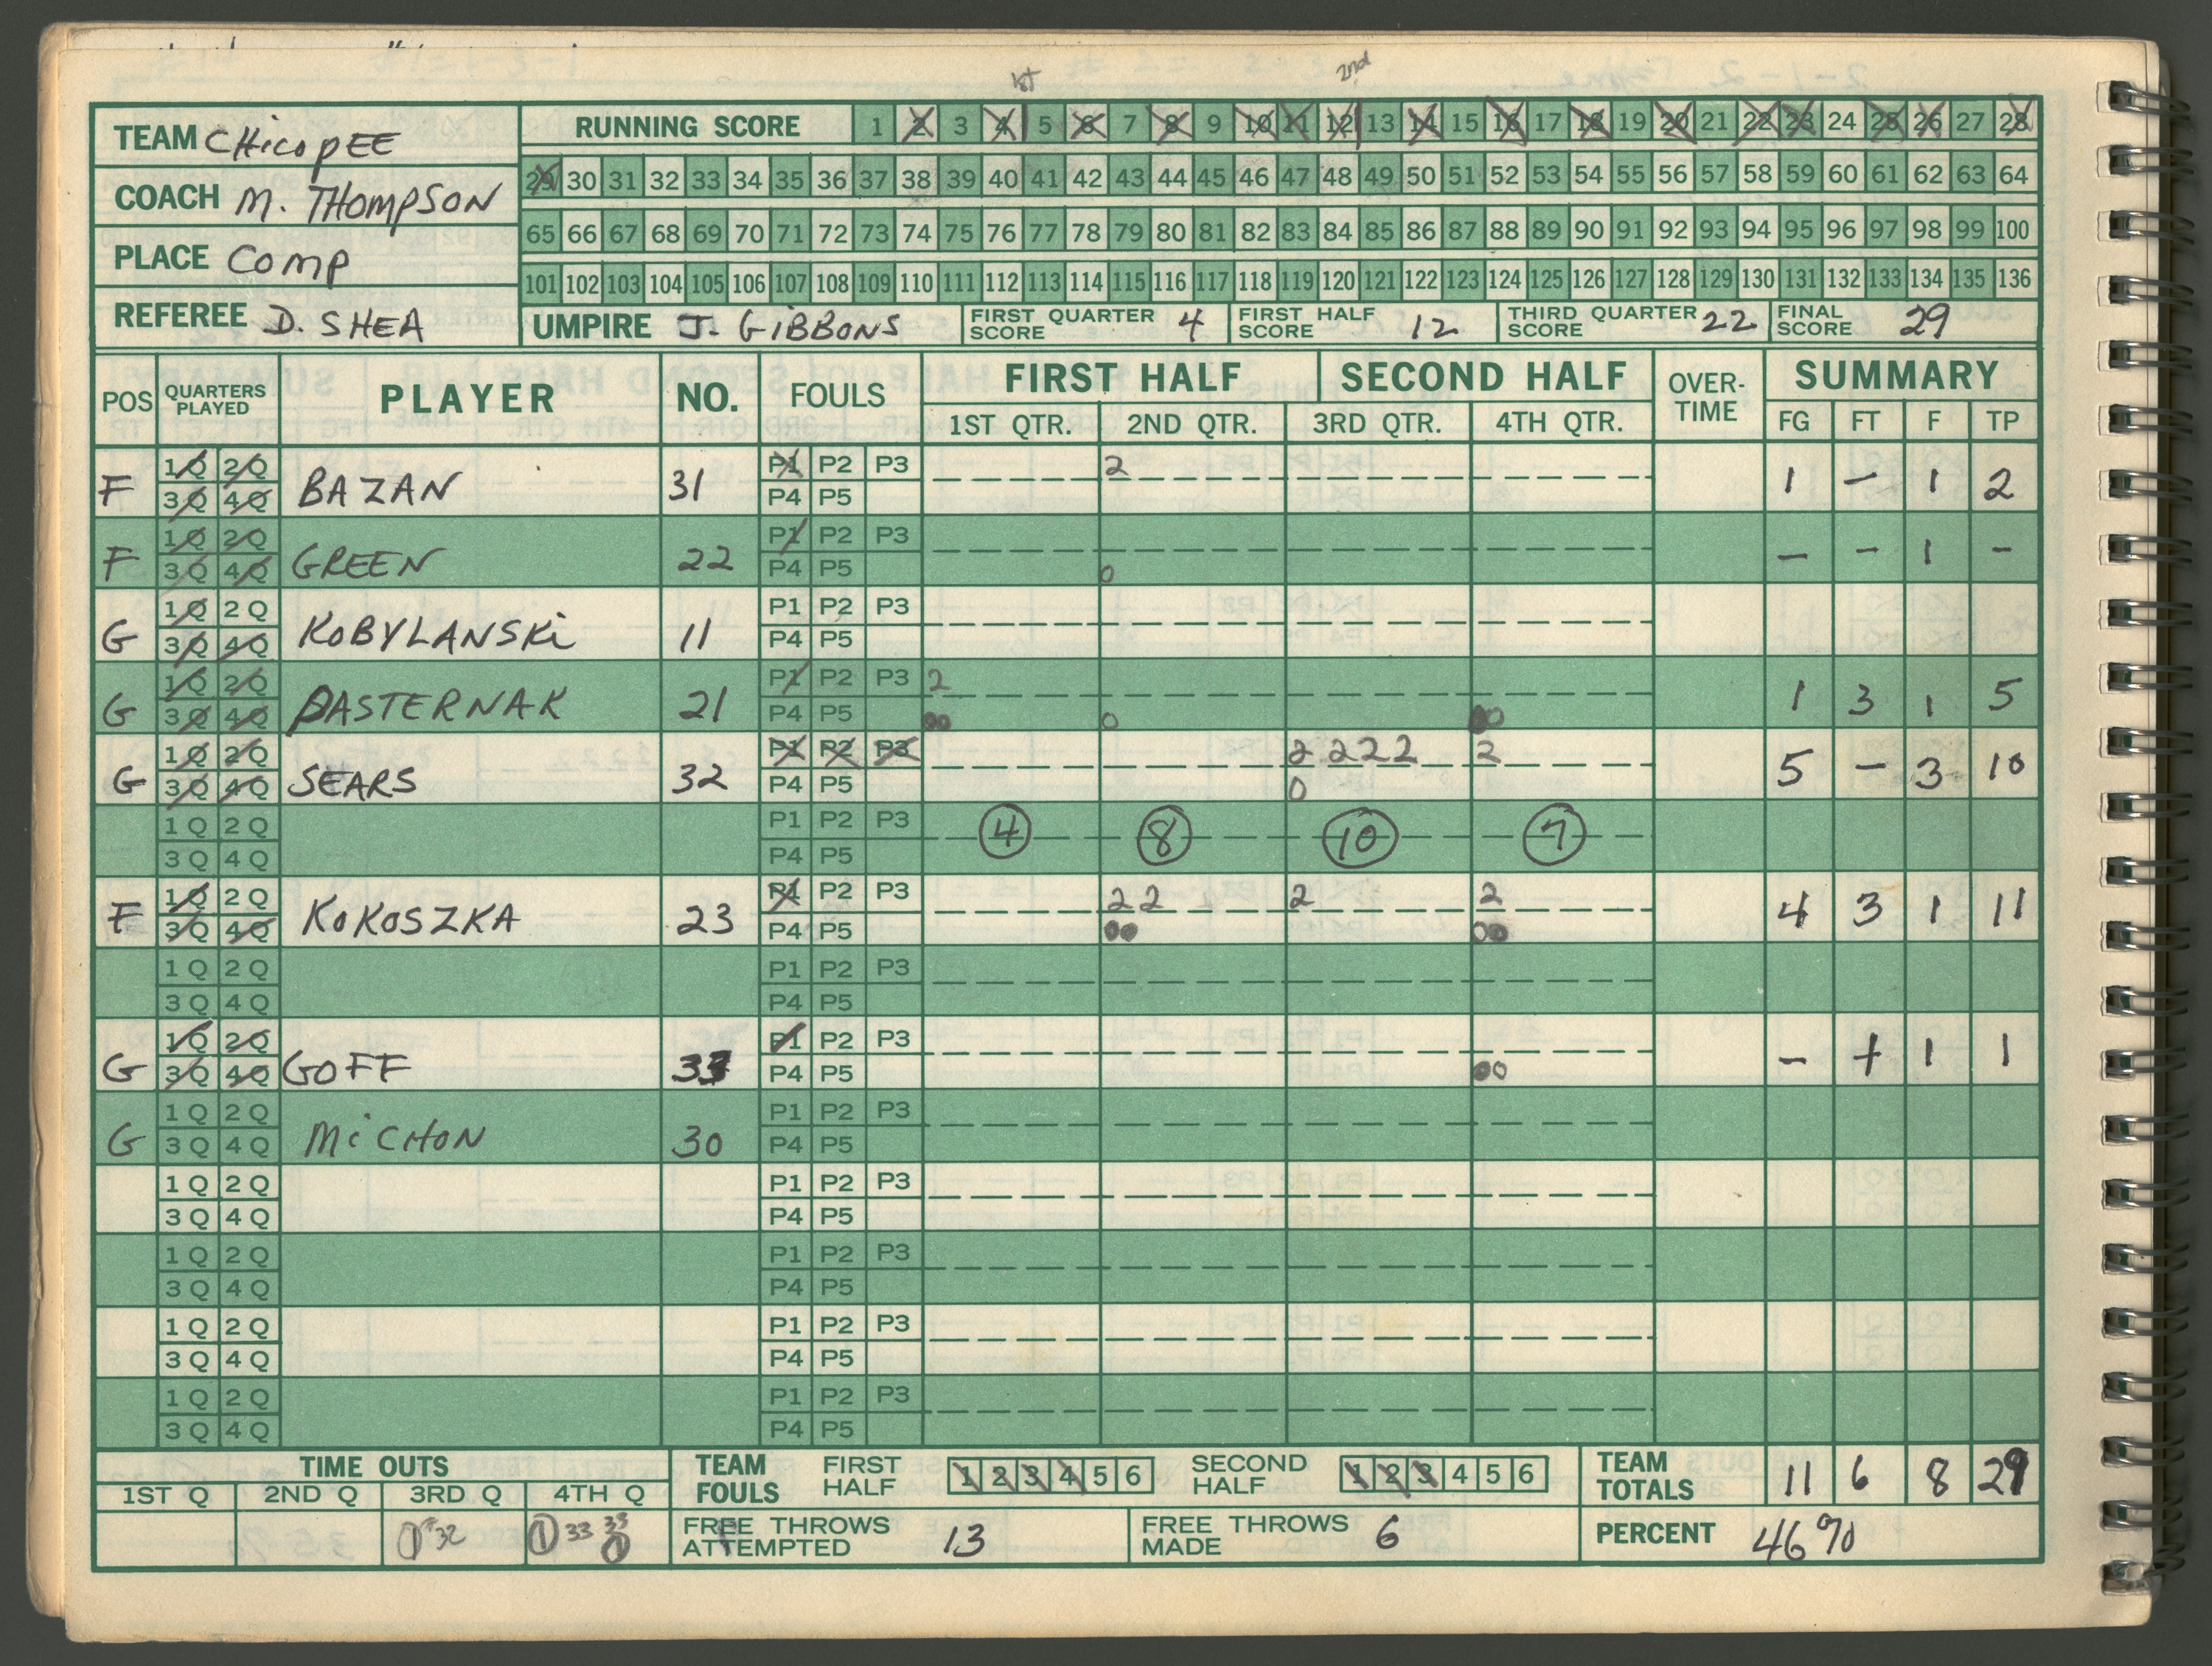 1st 2nd
TEAM CHicoPEE
COACH M. THOMPSON
PLACE COMP
REFEREE D. SHEA
RUNNING SCORE 1 2 3 4 5 6 7 8 9 10 11 12 13 14 15 16 17 18 19 20 21 22 23 24 25 26 27 28
29 30 31 32 33 34 35 36 37 38 39 40 41 42 43 44 45 46 47 48 49 50 51 52 53 54 55 56 57 58 59 60 61 62 63 64
65 66 67 68 69 70 71 72 73 74 75 76 77 78 79 80 81 82 83 84 85 86 87 88 89 90 91 92 93 94 95 96 97 98 99 100
101 102 103 104 105 106 107 108 109 110 111 112 113 114 115 116 117 118 119 120 121 122 123 124 125 126 127 128 129 130 131 132 133 134 135 136
UMPIRE J. GiBBONS FIRST QUARTER SCORE 4 FIRST HALF SCORE 12 THIRD QUARTER SCORE 22 FINAL SCORE 29
POS QUARTERS PLAYED PLAYER NO. FOULS FIRST HALF SECOND HALF OVER-TIME SUMMARY
1ST QTR. 2ND QTR. 3RD QTR. 4TH QTR. FG FT F TP
F 1Q 2Q 3Q 4Q BAZAN 31 P1 P2 P3 P4 P5 2 1 - 1 2
F 1Q 2Q 3Q 4Q GREEN 22 P1 P2 P3 P4 P5 0 - - 1 -
G 1Q 2Q 3Q 4Q KOBYLANSKi 11 P1 P2 P3 P4 P5
G 1Q 2Q 3Q 4Q PASTERNAK 21 P1 P2 P3 P4 P5 2 00 0 00 1 3 1 5
G 1Q 2Q 3Q 4Q SEARS 32 P1 P2 P3 P4 P5 2 2 2 2 0 2 5 - 3 10
1Q 2Q 3Q 4Q P1 P2 P3 P4 P5 4 8 10 7
F 1Q 2Q 3Q 4Q KOKOSZKA 23 P1 P2 P3 P4 P5 2 2 00 2 2 00 4 3 1 11
1Q 2Q 3Q 4Q P1 P2 P3 P4 P5
G 1Q 2Q 3Q 4Q GOFF 33 P1 P2 P3 P4 P5 00 - + 1 1
G 1Q 2Q 3Q 4Q MiCHON 30 P1 P2 P3 P4 P5
1Q 2Q 3Q 4Q P1 P2 P3 P4 P5
1Q 2Q 3Q 4Q P1 P2 P3 P4 P5
1Q 2Q 3Q 4Q P1 P2 P3 P4 P5
1Q 2Q 3Q 4Q P1 P2 P3 P4 P5
TIME OUTS TEAM FOULS FIRST HALF 1 2 3 4 5 6 SECOND HALF 1 2 3 4 5 6 TEAM TOTALS 11 6 8 29
1ST Q 2ND Q 3RD Q 4TH Q
1 #32 1 33 33 1 FREE THROWS ATTEMPTED 13 FREE THROWS MADE 6 PERCENT 46%